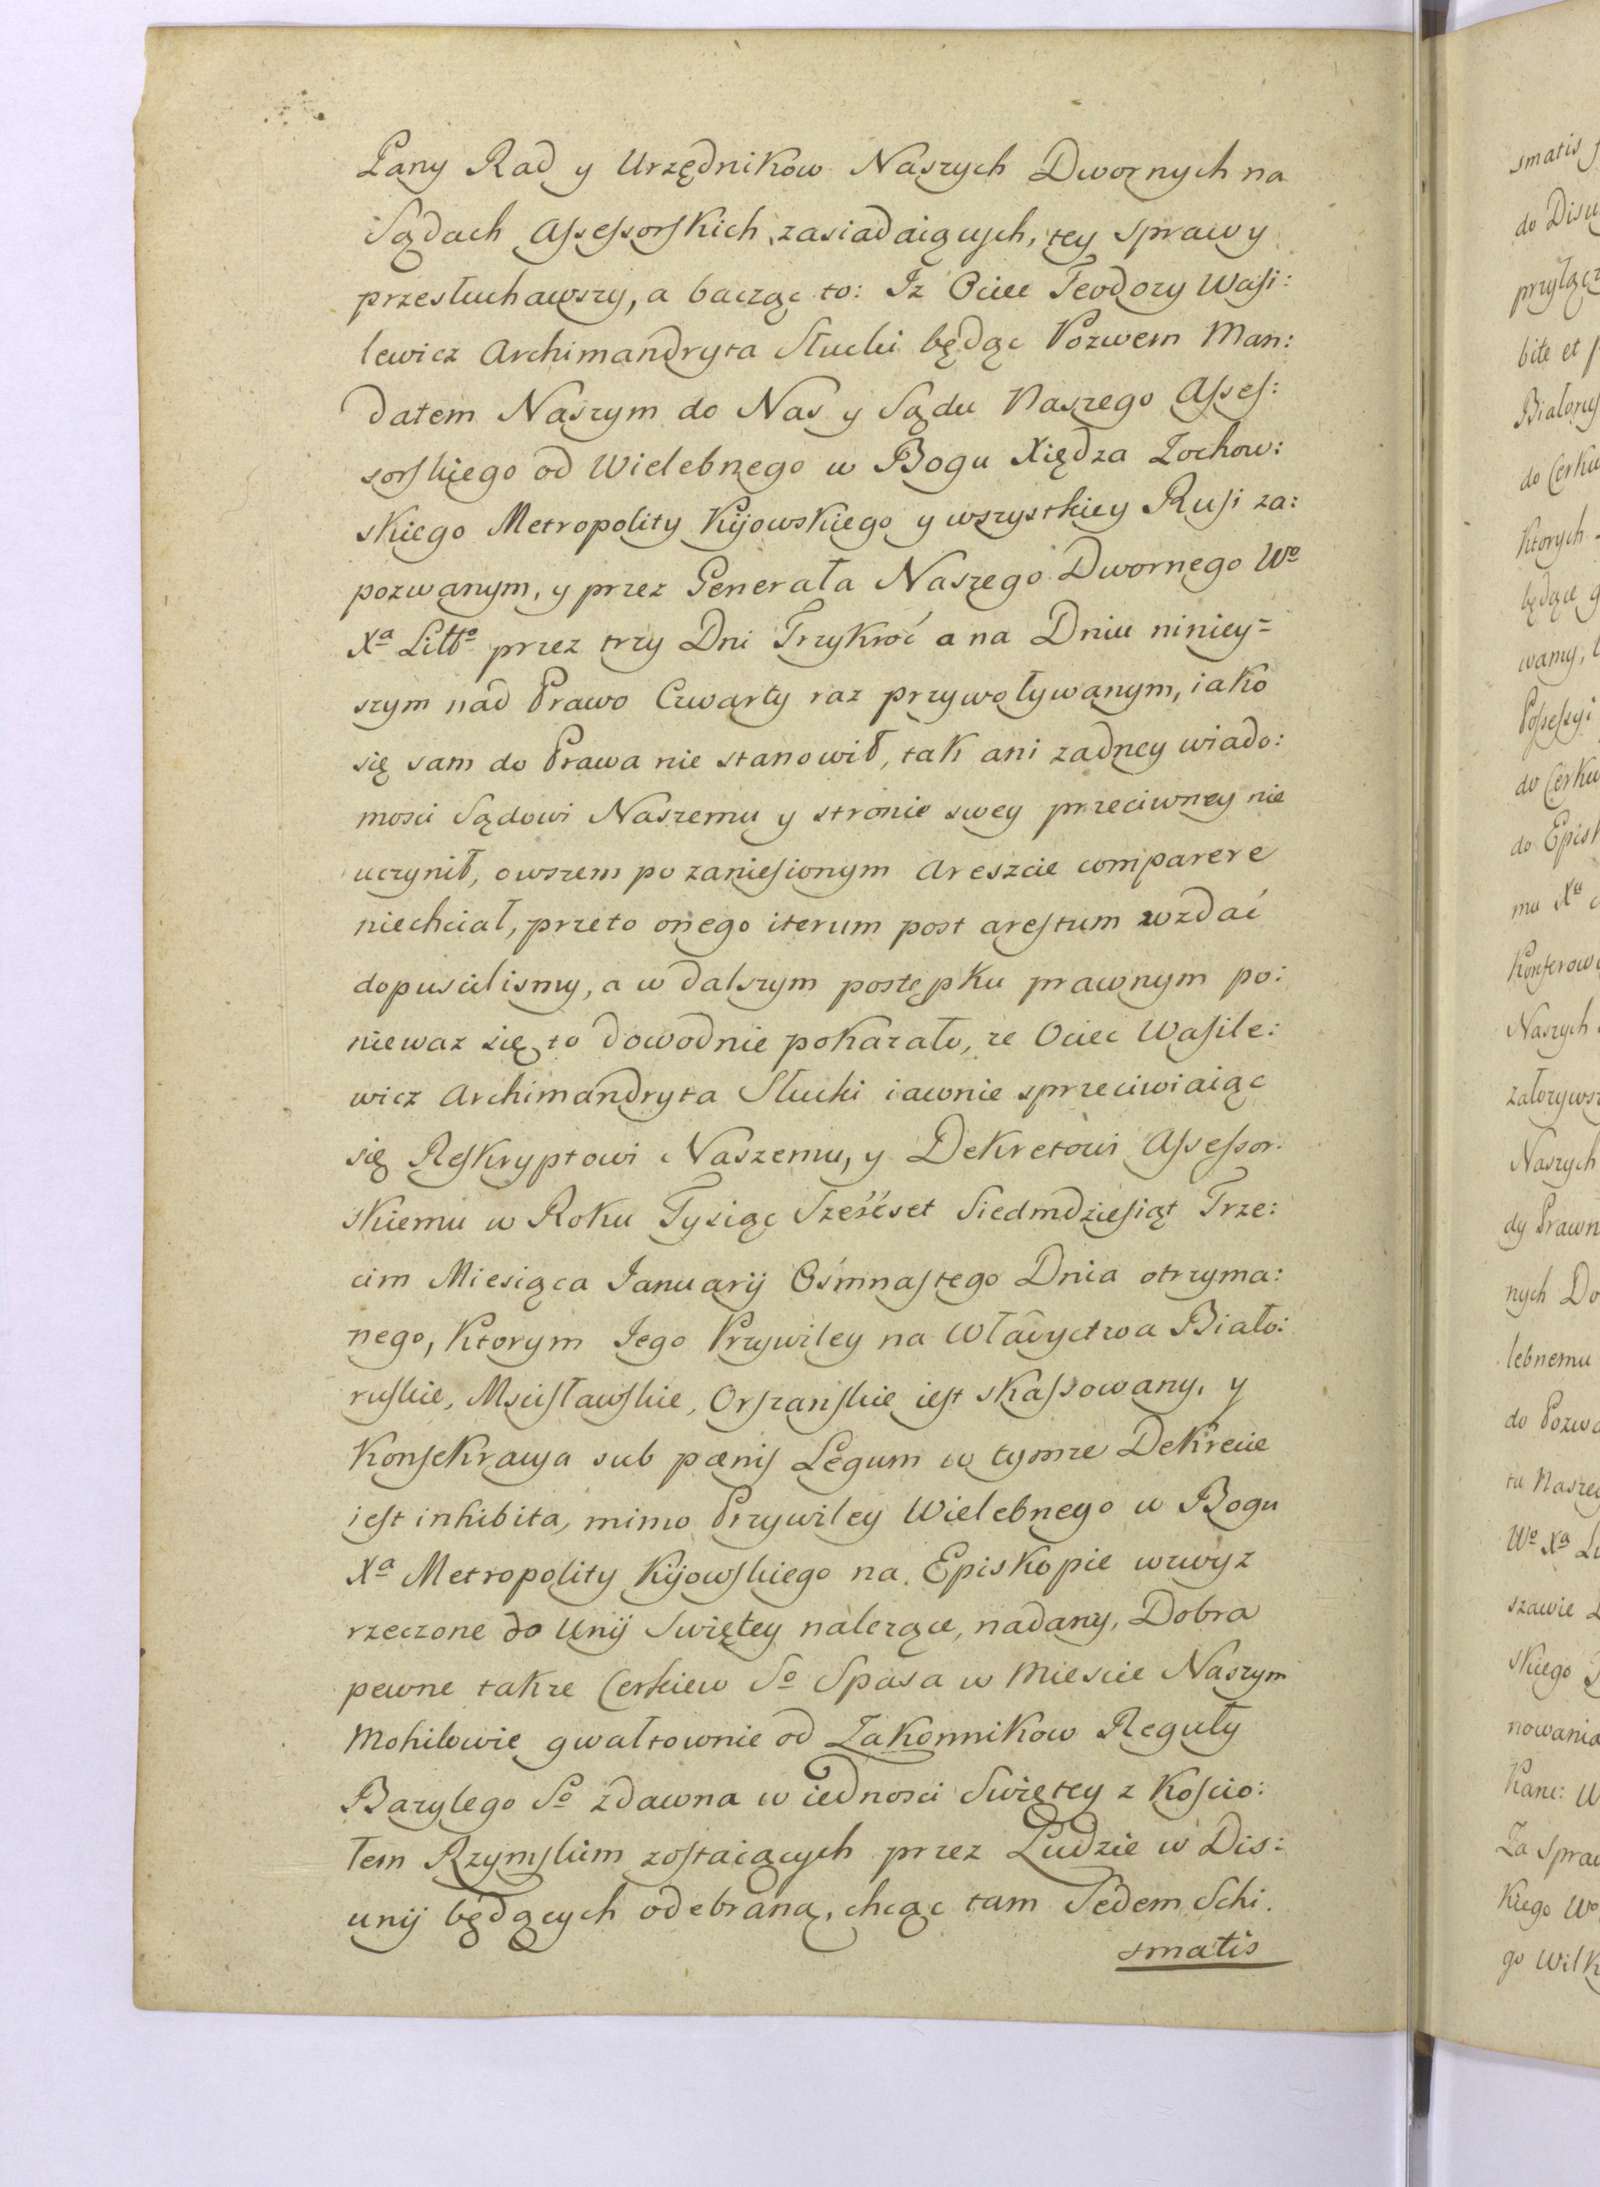 Pany Rad y Urzędnikow Naszych Dwornych na
Sądach Assessorskich zasiadaiących, tey Sprawy
przesłuchawszy, a bacząc to: Iz Ociec Teodozy Wasi:
lewicz Archimandryta Słucki będąc Pozwem Man:
datem Naszym do Nas y Sądu Naszego Asses:
sorskiego od Wielebnego w Bogu Xiędza Zochow:
skiego Metropolity Kijowskiego y wszystkiey Rusi za:
pozwanym, y przez Generała Naszego Dwornego Wº
Xª Littº przez trzy Dni Trzykroć a na Dniu niniey=
szym nad Prawo Czwarty raz przywoływanym, iako
się sam do Prawa nie stanowił, tak ani zadney wiado:
mosci Sądowi Naszemu y stronie swey przeciwney nie
uczynił, owszem po zaniesionym Areszcie comparere
niechciał, przeto onego iterum post arestum wzdać
dopuscilismy, a w dalszym postępku prawnym po:
niewaz się to dowodnie pokazało, ze Ociec Wasile:
wicz Archimandryta Słucki iawnie sprzeciwiaiąc
się Reskryptowi Naszemu, y Dekretowi Assessor:
skiemu w Roku Tysiąc Sześćset Siedmdziesiąt Trze:
cim Miesiąca Ianuarij Ośmnastego Dnia otrzyma:
nego, Ktorym Iego Przywiley na Władyctwa Biało:
ruskie, Mscisławskie, Orszanskie iest skassowany, y
Konsekracya sub pœnis Legum w tymze Dekrecie
iest inhibita, mimo Przywiley Wielebnego w Bogu
Xª Metropolity Kijowskiego na Episkopie wzwyz
rzeczone do Unij Swiętey nalezące, nadany, Dobra
pewne takze Cerkiew Sº Spasa w Miescie Naszym
Mohilowie gwałtownie od Zakonnikow Reguły
Bazylego Sº zdawna w iednosci Swiętey z Koscio:
łem Rzymskim zostaiących przez Ludzie w Dis:
unij będących odebraną, chcąc tam Sedem Schi:
smatis
smatis
do Disu
przyłącz
bite et
Białorus
do Cerku
Ktorych
będące
wamy,
Possessyi
do Cerku
do Episk
mu Xª
Konferow
Naszych
załozyws
Naszych
dy Prawn
nych Do
lebnemu
do Pozwa
tu Nasze
Wº Xª Li
szawie
skiego
nowania
Kanc: W
Za Spraw
Kiego Wº
go Wilk